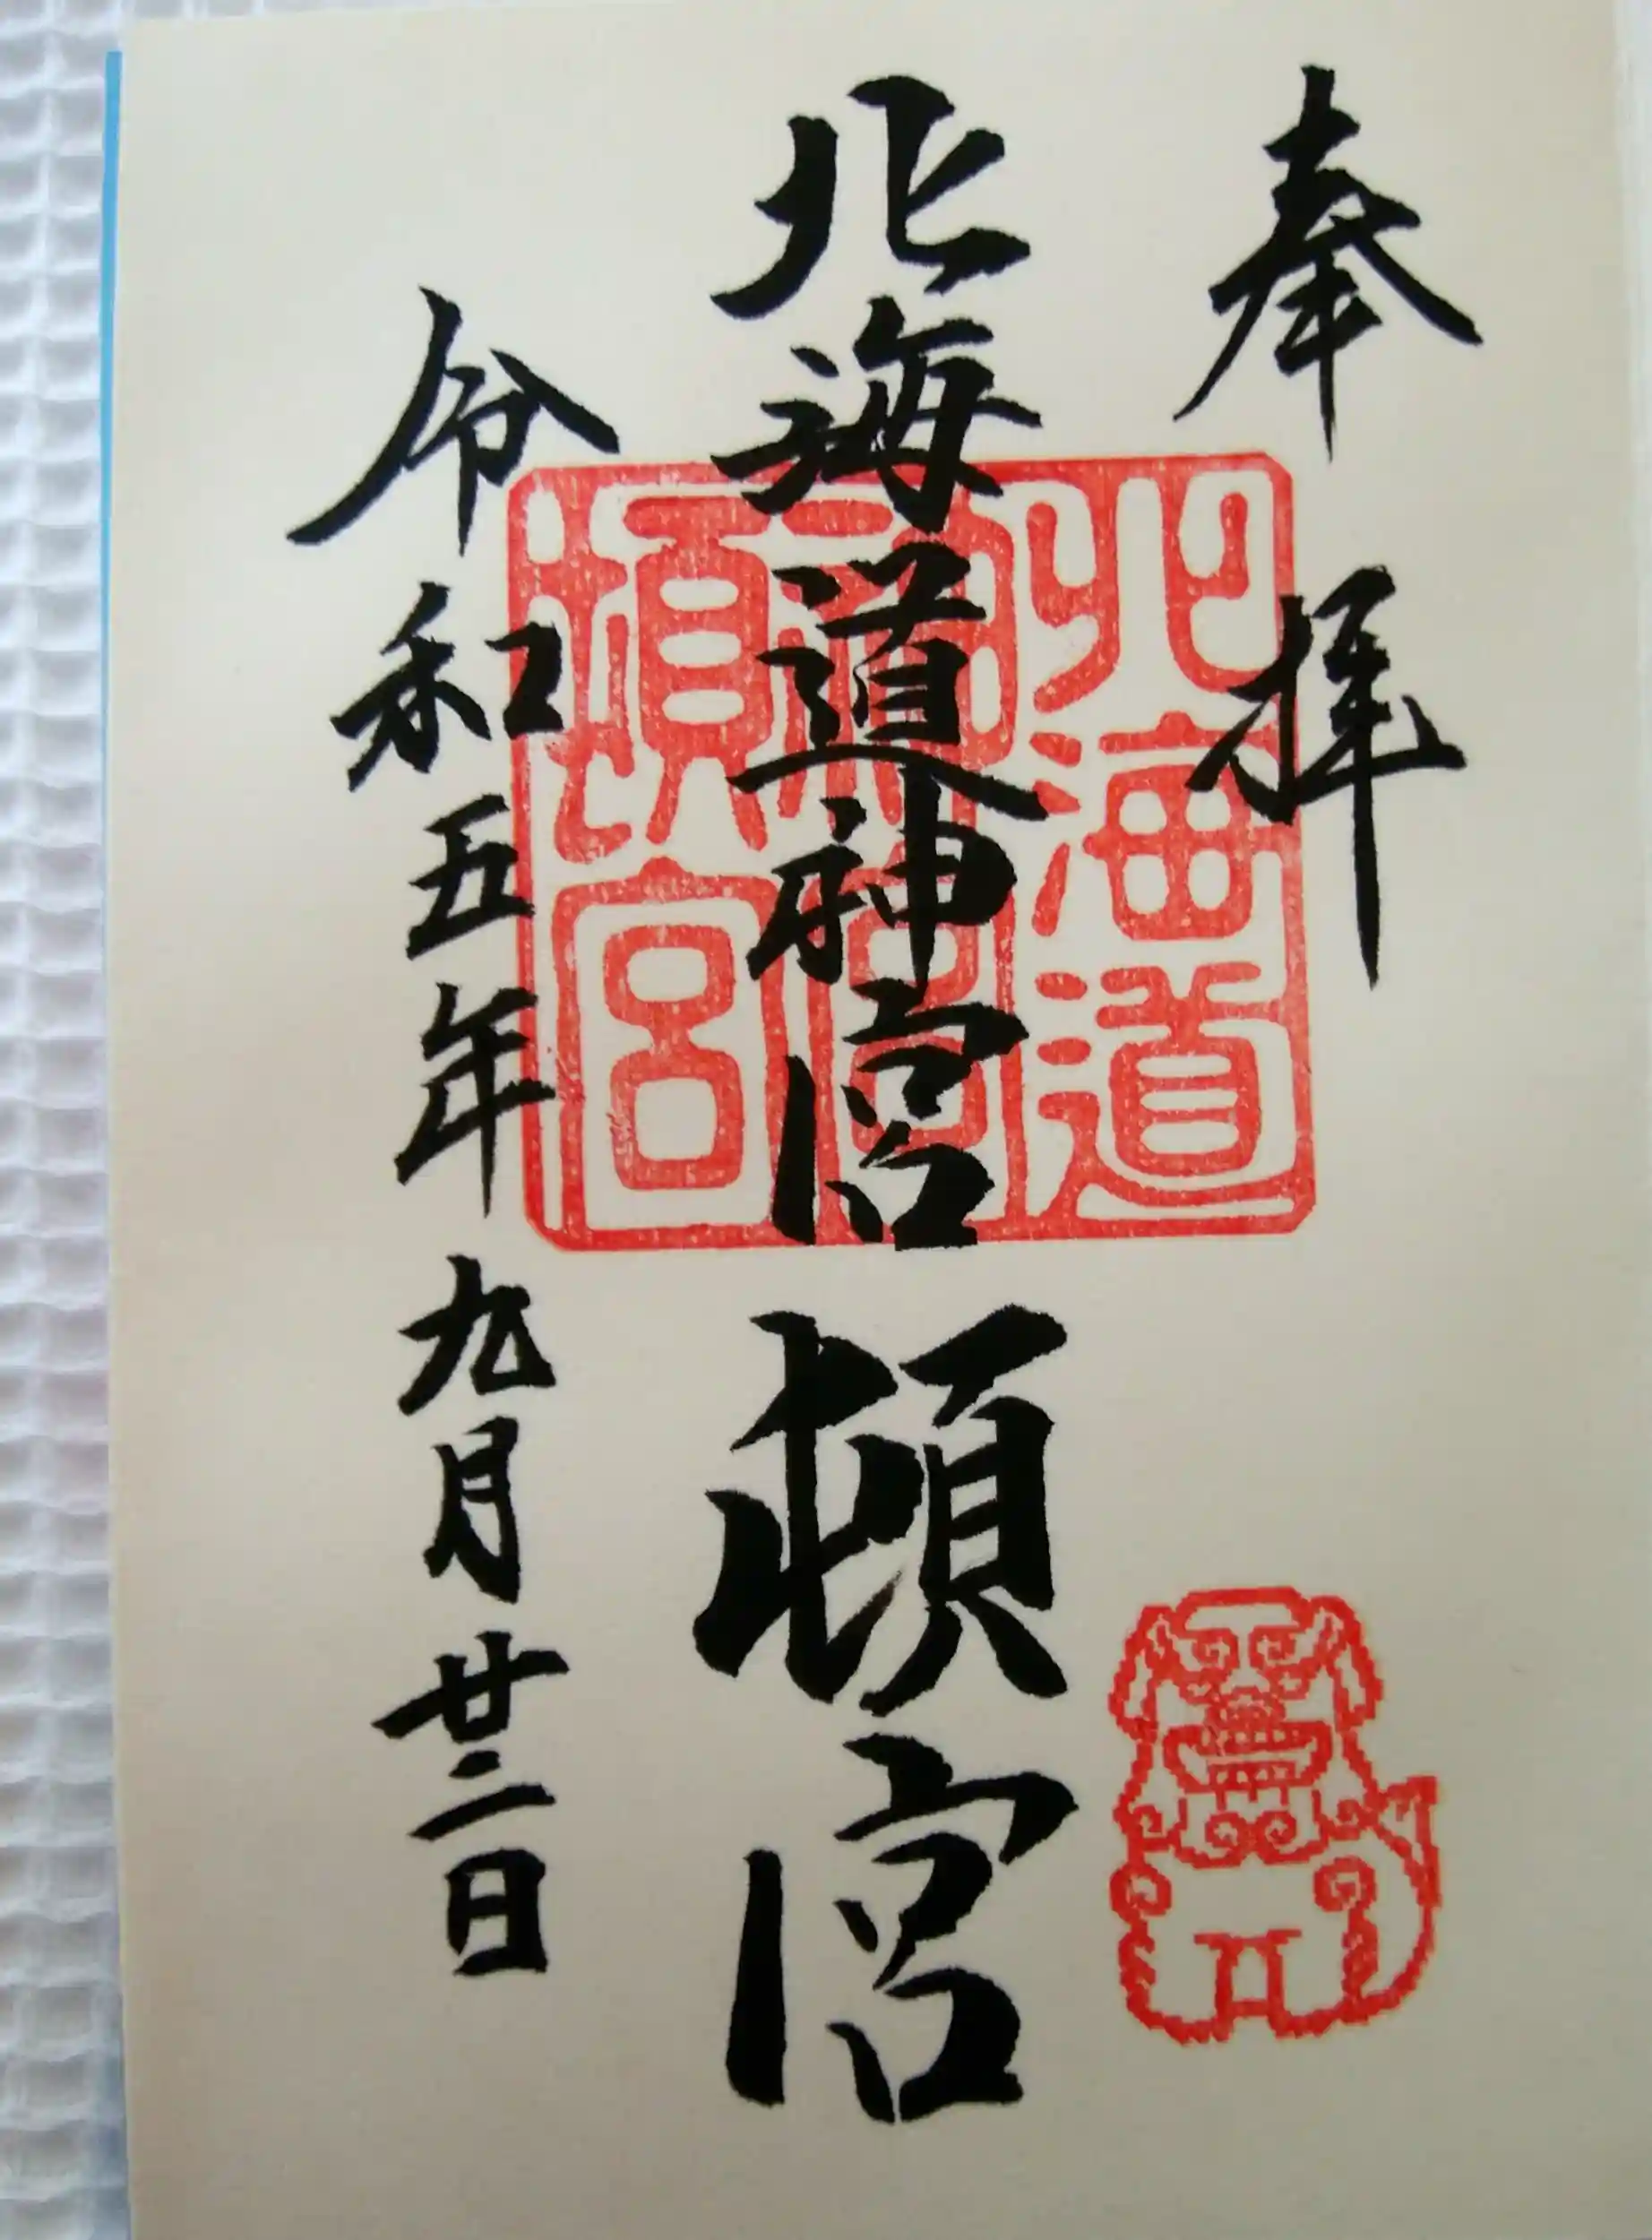 奉拝
北海道神宮頓宮
令和五年九月廿二日
北海道
神宮
頓宮